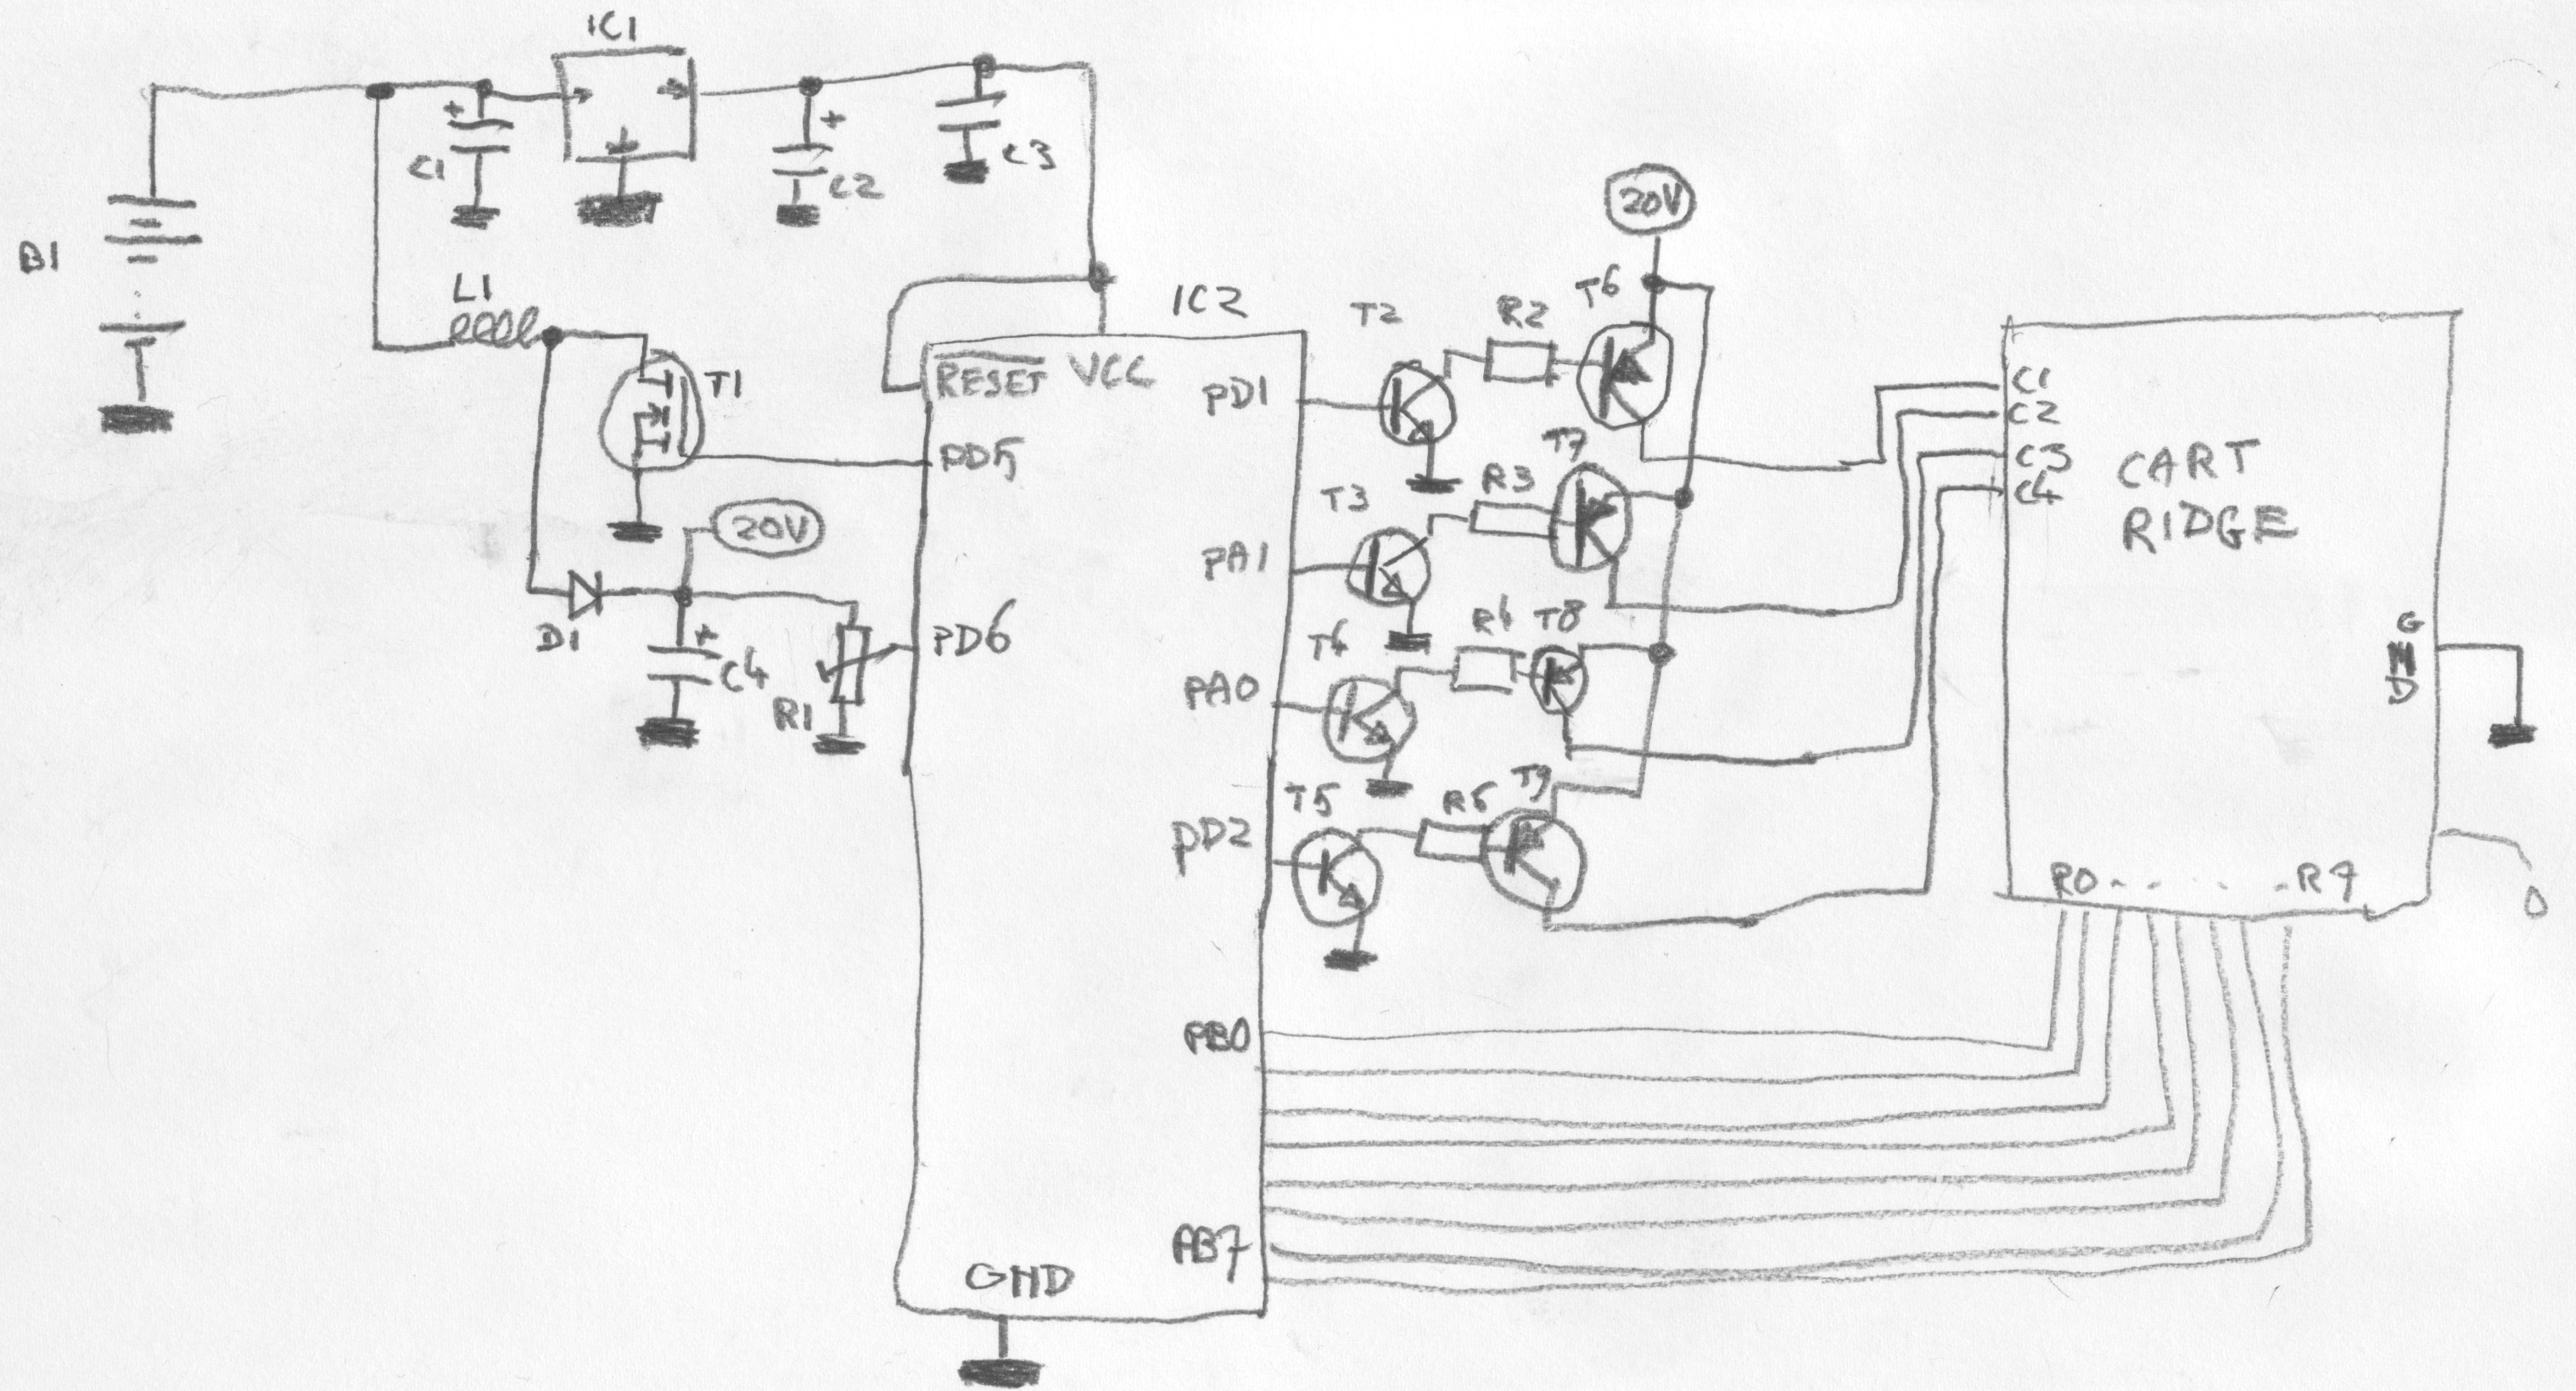 IC1
+
C1
+
C2
C3
B1
L1
T1
20V
D1
+
C4
R1
IC2
RESET
VCC
PD5
PD6
PD1
PA1
PA0
PD2
PB0
GND
T2
R2
T6
20V
T3
R3
T7
T4
R4
T8
T5
R5
T9
C1
C2
C3
C4
CART
RIDGE
G
N
D
R0.. .. .R7